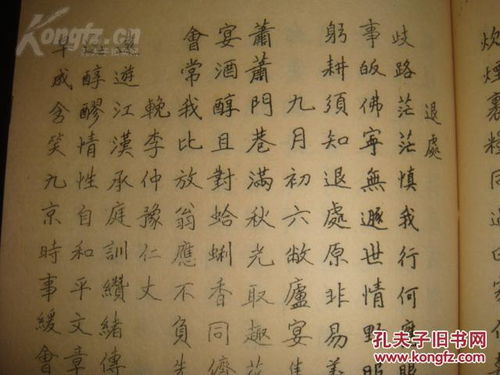 炊煙裏糧同
退處
歧路茫茫慎我行何
事皈佛寧無遯世情野服
躬耕須知退處原非易
九月初六敝廬宴
蕭蕭門巷滿秋光取趣
宴酒醇且對蛤蜊香同儕
會常我比放翁應不負
輓李仲豫仁丈
遊江漢承庭訓纘緒傳
醇醪情性自和平文章
成含笑九京時事緩會
Kongfz.com
孔夫子旧书网
www.kongfz.com